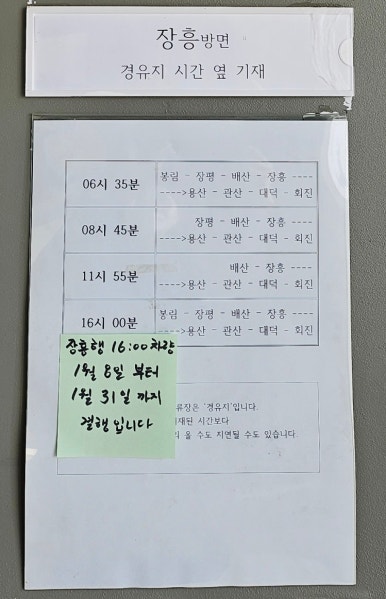 장흥방면
경유지 시간 옆 기재
06시 35분
봉림 - 장평 - 배산 - 장흥 ----
---->용산 - 관산 - 대덕 - 회진
08시 45분
장평 - 배산 - 장흥 ----
---->용산 - 관산 - 대덕 - 회진
11시 55분
배산 - 장흥 ----
---->용산 - 관산 - 대덕 - 회진
16시 00분
봉림 - 장평 - 배산 - 장흥 ----
---->용산 - 관산 - 대덕 - 회진
장흥행 16:00차량
1월 8일 부터
1월 31일 까지
결행입니다
류장은 '경유지'입니다.
재된 시간보다
올 수도 지연될 수도 있습니다.